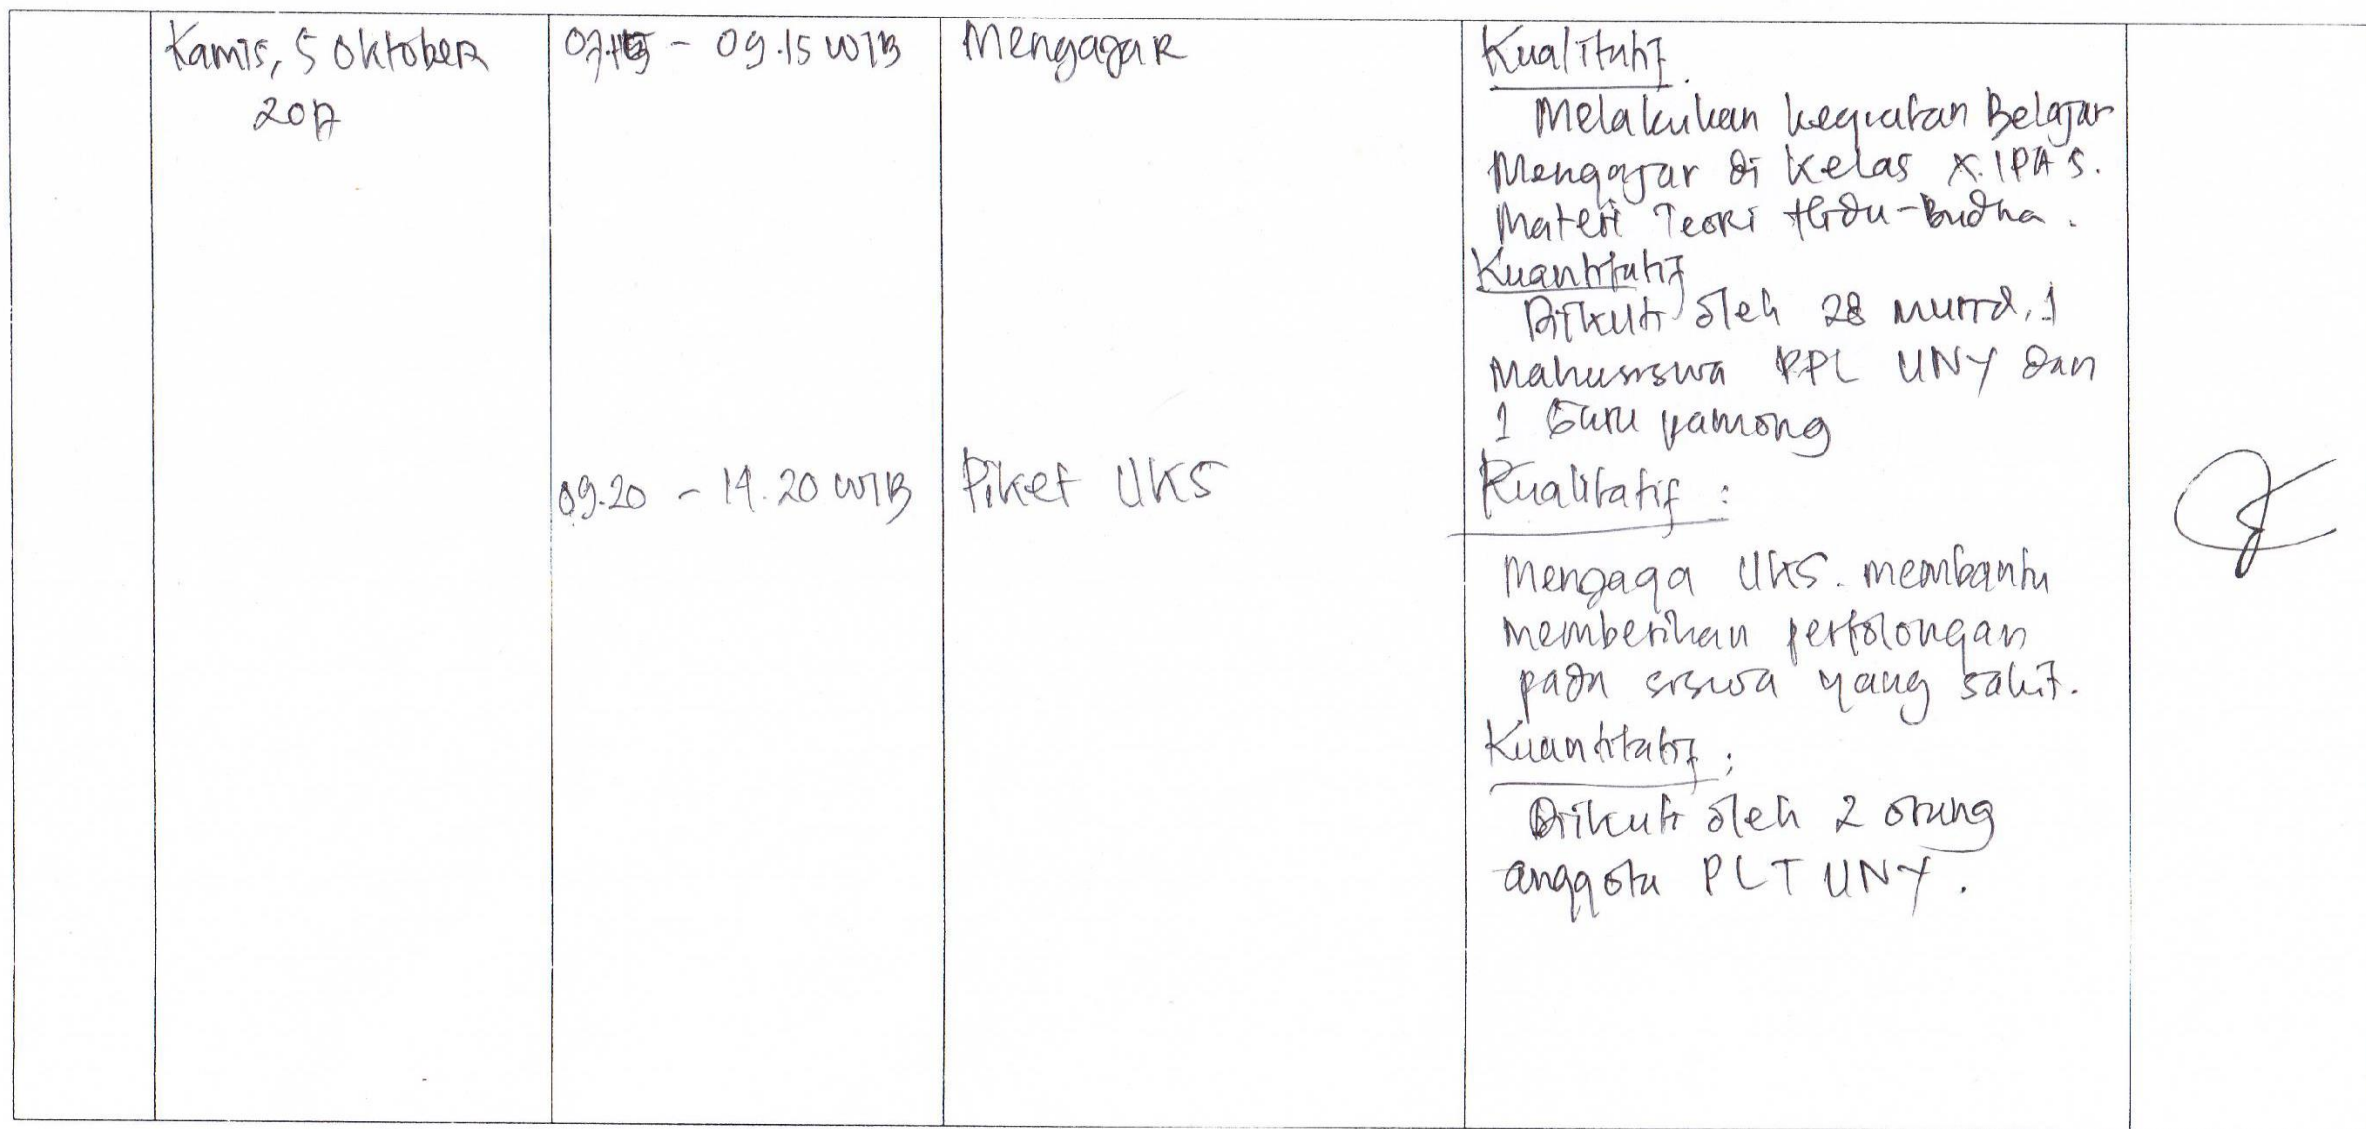 Kamis, 5 Oktober
2017
07.15 - 09.15 WIB
Mengajar
Kualitatif
Melakukan kegiatan Belajar
Mengajar di kelas X.IPA 5.
Materi Teori Hindu-Budha.
Kuantitatif
Diikuti oleh 28 murid, 1
Mahasiswa PPL UNY dan
1 Guru pamong
09.20 - 14.20 WIB
Piket UKS
Kualitatif :
Menjaga UKS. membantu
memberikan pertolongan
pada siswa yang sakit.
Kuantitatif :
Diikuti oleh 2 orang
anggota PLT UNY.